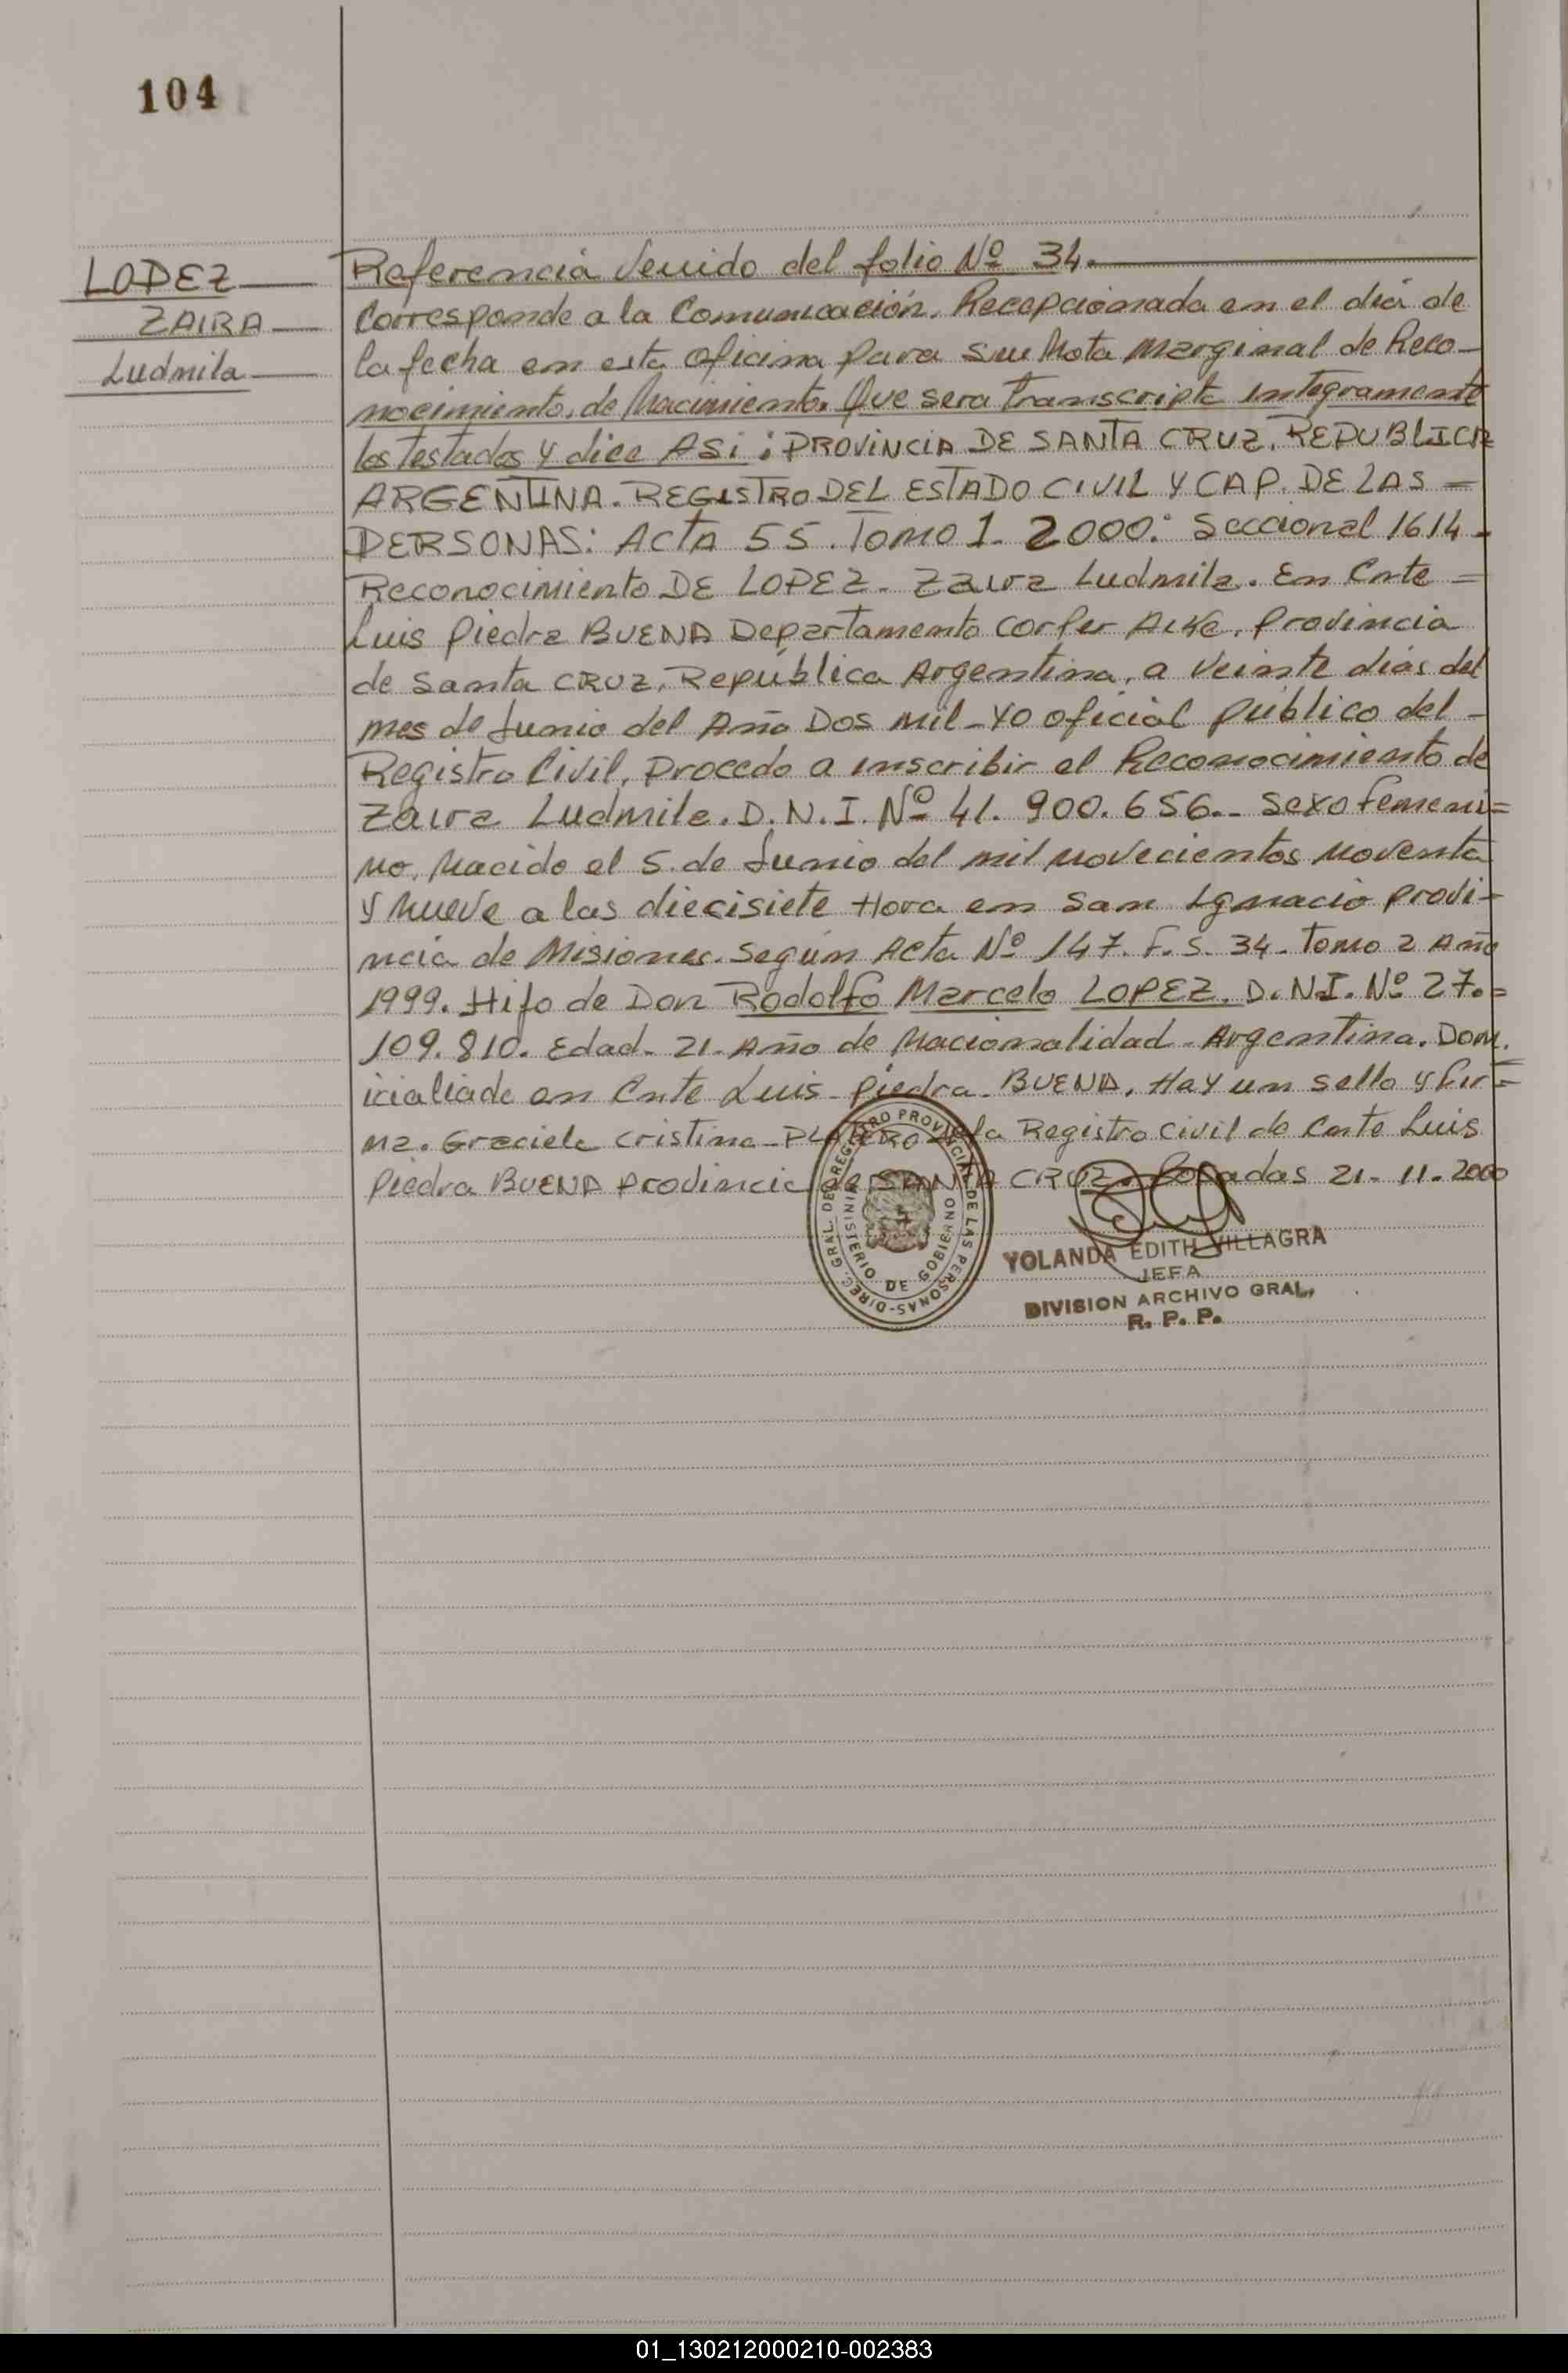 104
LOPEZ
ZAIRA
Ludmila
Referencia Venido del folio Nº 34.
Corresponde a la Comunicación. Recepcionada en el dia de
la fecha en esta oficina para su Nota Marginal de Reco-
nocimiento. de Nacimiento. Que sera transcripta integramente
los Testados y dice ASi : PROVINCIA DE SANTA CRUZ. REPUBLICA
ARGENTINA. REGISTRO DEL ESTADO CIVIL Y CAP. DE LAS =
PERSONAS: ACTA 55. Tomo 1. 2000: Seccional 1614-
Reconocimiento DE LOPEZ. Zaira Ludmila. En Cnte =
Luis Piedra BUENA Departamento Corper Aike. Provincia
de Santa CRUZ. República Argentina, a Veinte dias del
mes de Junio del Año Dos mil - YO oficial público del -
Registro Civil, Procedo a inscribir el Reconocimiento de
Zaira Ludmila. D.N.I. Nº 41.900.656.- Sexo femeni=
no. Nacido el 5. de Junio del mil novecientos noventa
Y Nueve a las diecisiete Hora en San Ignacio provi-
ncia de Misiones. Según Acta Nº 147. F.S. 34. Tomo 2 Año
1999. Hijo de Don Rodolfo Marcelo LOPEZ. D.N.I. Nº 27.=
109.810. Edad. 21. Año de Nacionalidad - Argentina. Dom.
icialiado en Cnte Luis - Piedra. BUENA. Hay un sello y fir=
ma. Graciela Cristina Registro Civil de Cnte Luis
Piedra BUENA Provincia de SANTA CRUZ. Posadas 21-11-2000
DIREC. GRAL. DEL REGISTRO PROVINCIAL DE LAS PERSONAS
MINISTERIO DE GOBIERNO
YOLANDA EDITH VILLAGRA
JEFA
DIVISION ARCHIVO GRAL.
R. P. P.
01_130212000210-002383